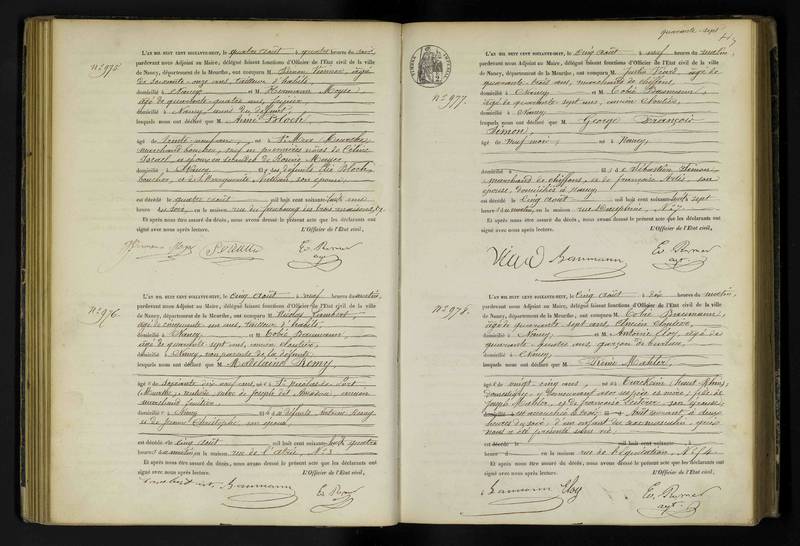 N° 975.
L'AN MIL HUIT CENT SOIXANTE-HUIT, le quatre août à quatre heures du soir
pardevant nous Adjoint au Maire, délégué faisant fonctions d'Officier de l'Etat civil de la ville
de Nancy, département de la Meurthe, ont comparu M. âgé
de soixante onze ans, tailleur d'habits,
domicilié à Nancy et M. Hermann Moyse
âgé de quarante quatre ans,
domicilié à Nancy, amis du défunt,
lesquels nous ont déclaré que M. Aimé Bloch
âgé de trente neuf ans, né à
marchand boucher, veuf en premières noces de Céline
Israel,
domicilié à Nancy fils des défunts Elie Bloch
boucher, et de Marguerite son épouse
est décédé le quatre août mil huit cent soixante-huit, à une
heure du soir, en la maison rue du faubourg des trois maisons, 59.
Et après nous être assuré du décès, nous avons dressé le présent acte que les déclarants ont
signé avec nous après lecture. L'Officier de l'Etat civil,
N° 976.
L'AN MIL HUIT CENT SOIXANTE-HUIT, le cinq août à neuf heures du matin,
pardevant nous Adjoint au Maire, délégué faisant fonctions d'Officier de l'Etat civil de la ville
de Nancy, département de la Meurthe, ont comparu M. Nicolas Lambert
âgé de cinquante un ans, tailleur d'habits
domicilié à Nancy et M. Tobie Baumann
âgé de quarante sept ans, ancien
domicilié à Nancy, non parents de la défunte
lesquels nous ont déclaré que M Madelaine Remy
âgée de soixante dix neuf ans, née à St Nicolas de Port
(Meurthe), rentière, veuve de Joseph ancien
marchand
domiciliée à Nancy fille des défunts Antoine Remy
et de Jeanne Christophe, son épouse
est décédée le cinq août mil huit cent soixante-huit, à quatre
heures du matin, en la maison rue de l'abbé N° 3
Et après nous être assuré du décès, nous avons dressé le présent acte que les déclarants ont
signé avec nous après lecture. L'Officier de l'Etat civil,
Baumann
quarante-sept
47
TIMBRE IMPERIAL
N° 977.
L'AN MIL HUIT CENT SOIXANTE-HUIT, le cinq août à neuf heures du matin,
pardevant nous Adjoint au Maire, délégué faisant fonctions d'Officier de l'Etat civil de la ville
de Nancy, département de la Meurthe, ont comparu M. âgé de
quarante trois ans, marchand de chiffons,
domicilié à Nancy et M. Tobie Baumann,
âgé de quarante sept ans, ancien
domicilié à Nancy
lesquels nous ont déclaré que M. George François
Simon,
âgé de neuf mois, né à Nancy,
domicilié à fils de Sébastien Simon
marchand de chiffons, et de Françoise son
épouse, domiciliés à Nancy
est décédé le cinq août mil huit cent soixante-huit, à sept
heures du matin, en la maison rue N° 7
Et après nous être assuré du décès, nous avons dressé le présent acte que les déclarants ont
signé avec nous après lecture. L'Officier de l'Etat civil,
Baumann
N° 978.
L'AN MIL HUIT CENT SOIXANTE-HUIT, le cinq août à dix heures du matin,
pardevant nous Adjoint au Maire, délégué faisant fonctions d'Officier de l'Etat civil de la ville
de Nancy, département de la Meurthe, ont comparu M. Tobie Baumann,
âgé de quarante sept ans, ancien
domicilié à Nancy et M. Antoine Eloy, âgé de
quarante quatre ans, garçon de bureau,
domicilié à Nancy
lesquels nous ont déclaré que M Reine Mahler
âgée de vingt cinq ans, née à (haut Rhin)
domestique, y demeurant avec ses père et mère; fille de
Joseph Mahler, et de Françoise son épouse
est accouchée le trois août courant à deux
heures du soir, d'un enfant du sexe masculin, qui
nous a été présenté sans vie.
est décédé le mil huit cent soixante à
heure d en la maison rue de l'équitation, N° 54
Et après nous être assuré du décès, nous avons dressé le présent acte que les déclarants ont
signé avec nous après lecture. L'Officier de l'Etat civil,
Baumann Eloy